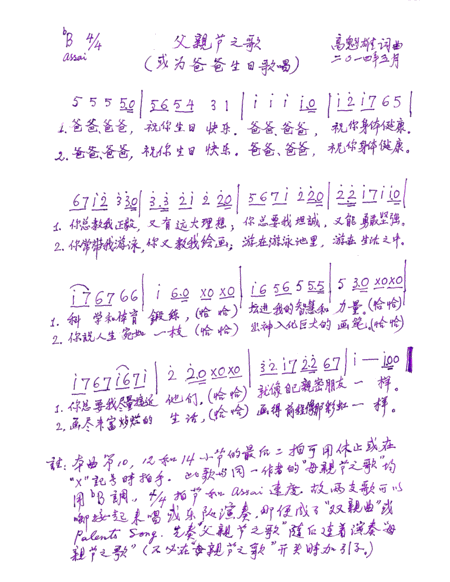 ᵇB 4/4
assai
父親节之歌
(或为爸爸生日歌唱)
高魁雄词曲
二〇一四年五月
5 5 5 5 5.0 | 5 6 5 4 3 1 | i i i i.0 | i 2 i 7 6 5 |
1. 爸爸、爸爸, 祝你生日 快乐. 爸爸、爸爸, 祝你身体健康.
2. 爸爸、爸爸, 祝你生日 快乐. 爸爸、爸爸, 祝你身体健康.
6 7 i 2 3 3.0 | 3.3 2 i 2 2.0 | 5 6 7 i 2 2.0 | 2.2 i 7 i i.0 |
1. 你总教我正数, 又有远大理想; 你总要我坦诚, 又能勇敢坚强.
2. 你常带我游泳, 你又教我绘画; 游在游泳池里, 游在生活之中.
i 7 6 7 6 6 | i 6.0 x0 x0 | i 6 5 6 5 5.5 | 5 3.0 x0 x0 |
1. 科 学和体育 锻练, (恰恰) 改进我的智慧和 力量. (恰恰)
2. 你说人生 宛如 一枝 (恰恰) 出神入化巨大的 画笔. (恰恰)
i 7 6 7 i 6 7 i | 2 2.0 x0 x0 | 3 2 i 7 2 2 6 7 | i — i00 |
1. 你总要我尽量接近 他们. (恰恰) 就像自己亲密朋友 一 样.
2. 画尽丰富灿烂的 生活, (恰恰) 画得前程像那彩虹 一 样.
註: 本曲第10, 12和14小节的最后二拍可用休止或在
"X"記号時拍手. 此歌与同一作者的"母親节之歌"均
用ᵇB調, 4/4拍节和Assai速度. 故两支歌可以
啣接起来唱或乐队演奏, 即便成了"双親曲"或
Parents Song. 先奏"父親节之歌"随后连着演奏"母
親节之歌" (不必在"母親节之歌"开头時加引子.)